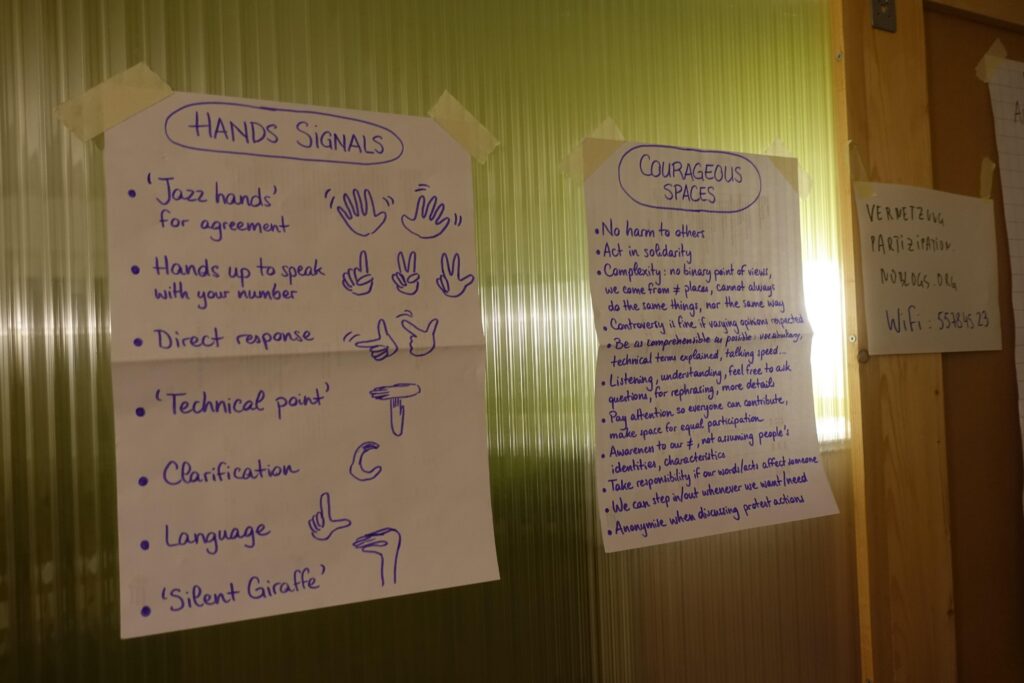 HANDS SIGNALS
• 'Jazz hands'
for agreement
• Hands up to speak
with your number
• Direct response
• 'Technical point'
• Clarification
• Language
• 'Silent Giraffe'
COURAGEOUS
SPACES
• No harm to others
• Act in solidarity
• Complexity: no binary point of views,
we come from ≠ places, cannot always
do the same things, nor the same way
• Controversy is fine if varying opinions respected
• Be as comprehensible as possible: vocabulary,
technical terms explained, talking speed...
• Listening, understanding, feel free to ask
questions, for rephrasing, more details
• Pay attention so everyone can contribute,
make space for equal participation
• Awareness to our ≠, not assuming people's
identities, characteristics
• Take responsibility if our words/acts affect someone
• We can step in/out whenever we want/need
• Anonymise when discussing protest actions
VERNETZUNG
PARTIZIPATION.
NOBLOGS.ORG
WiFi: 55784523